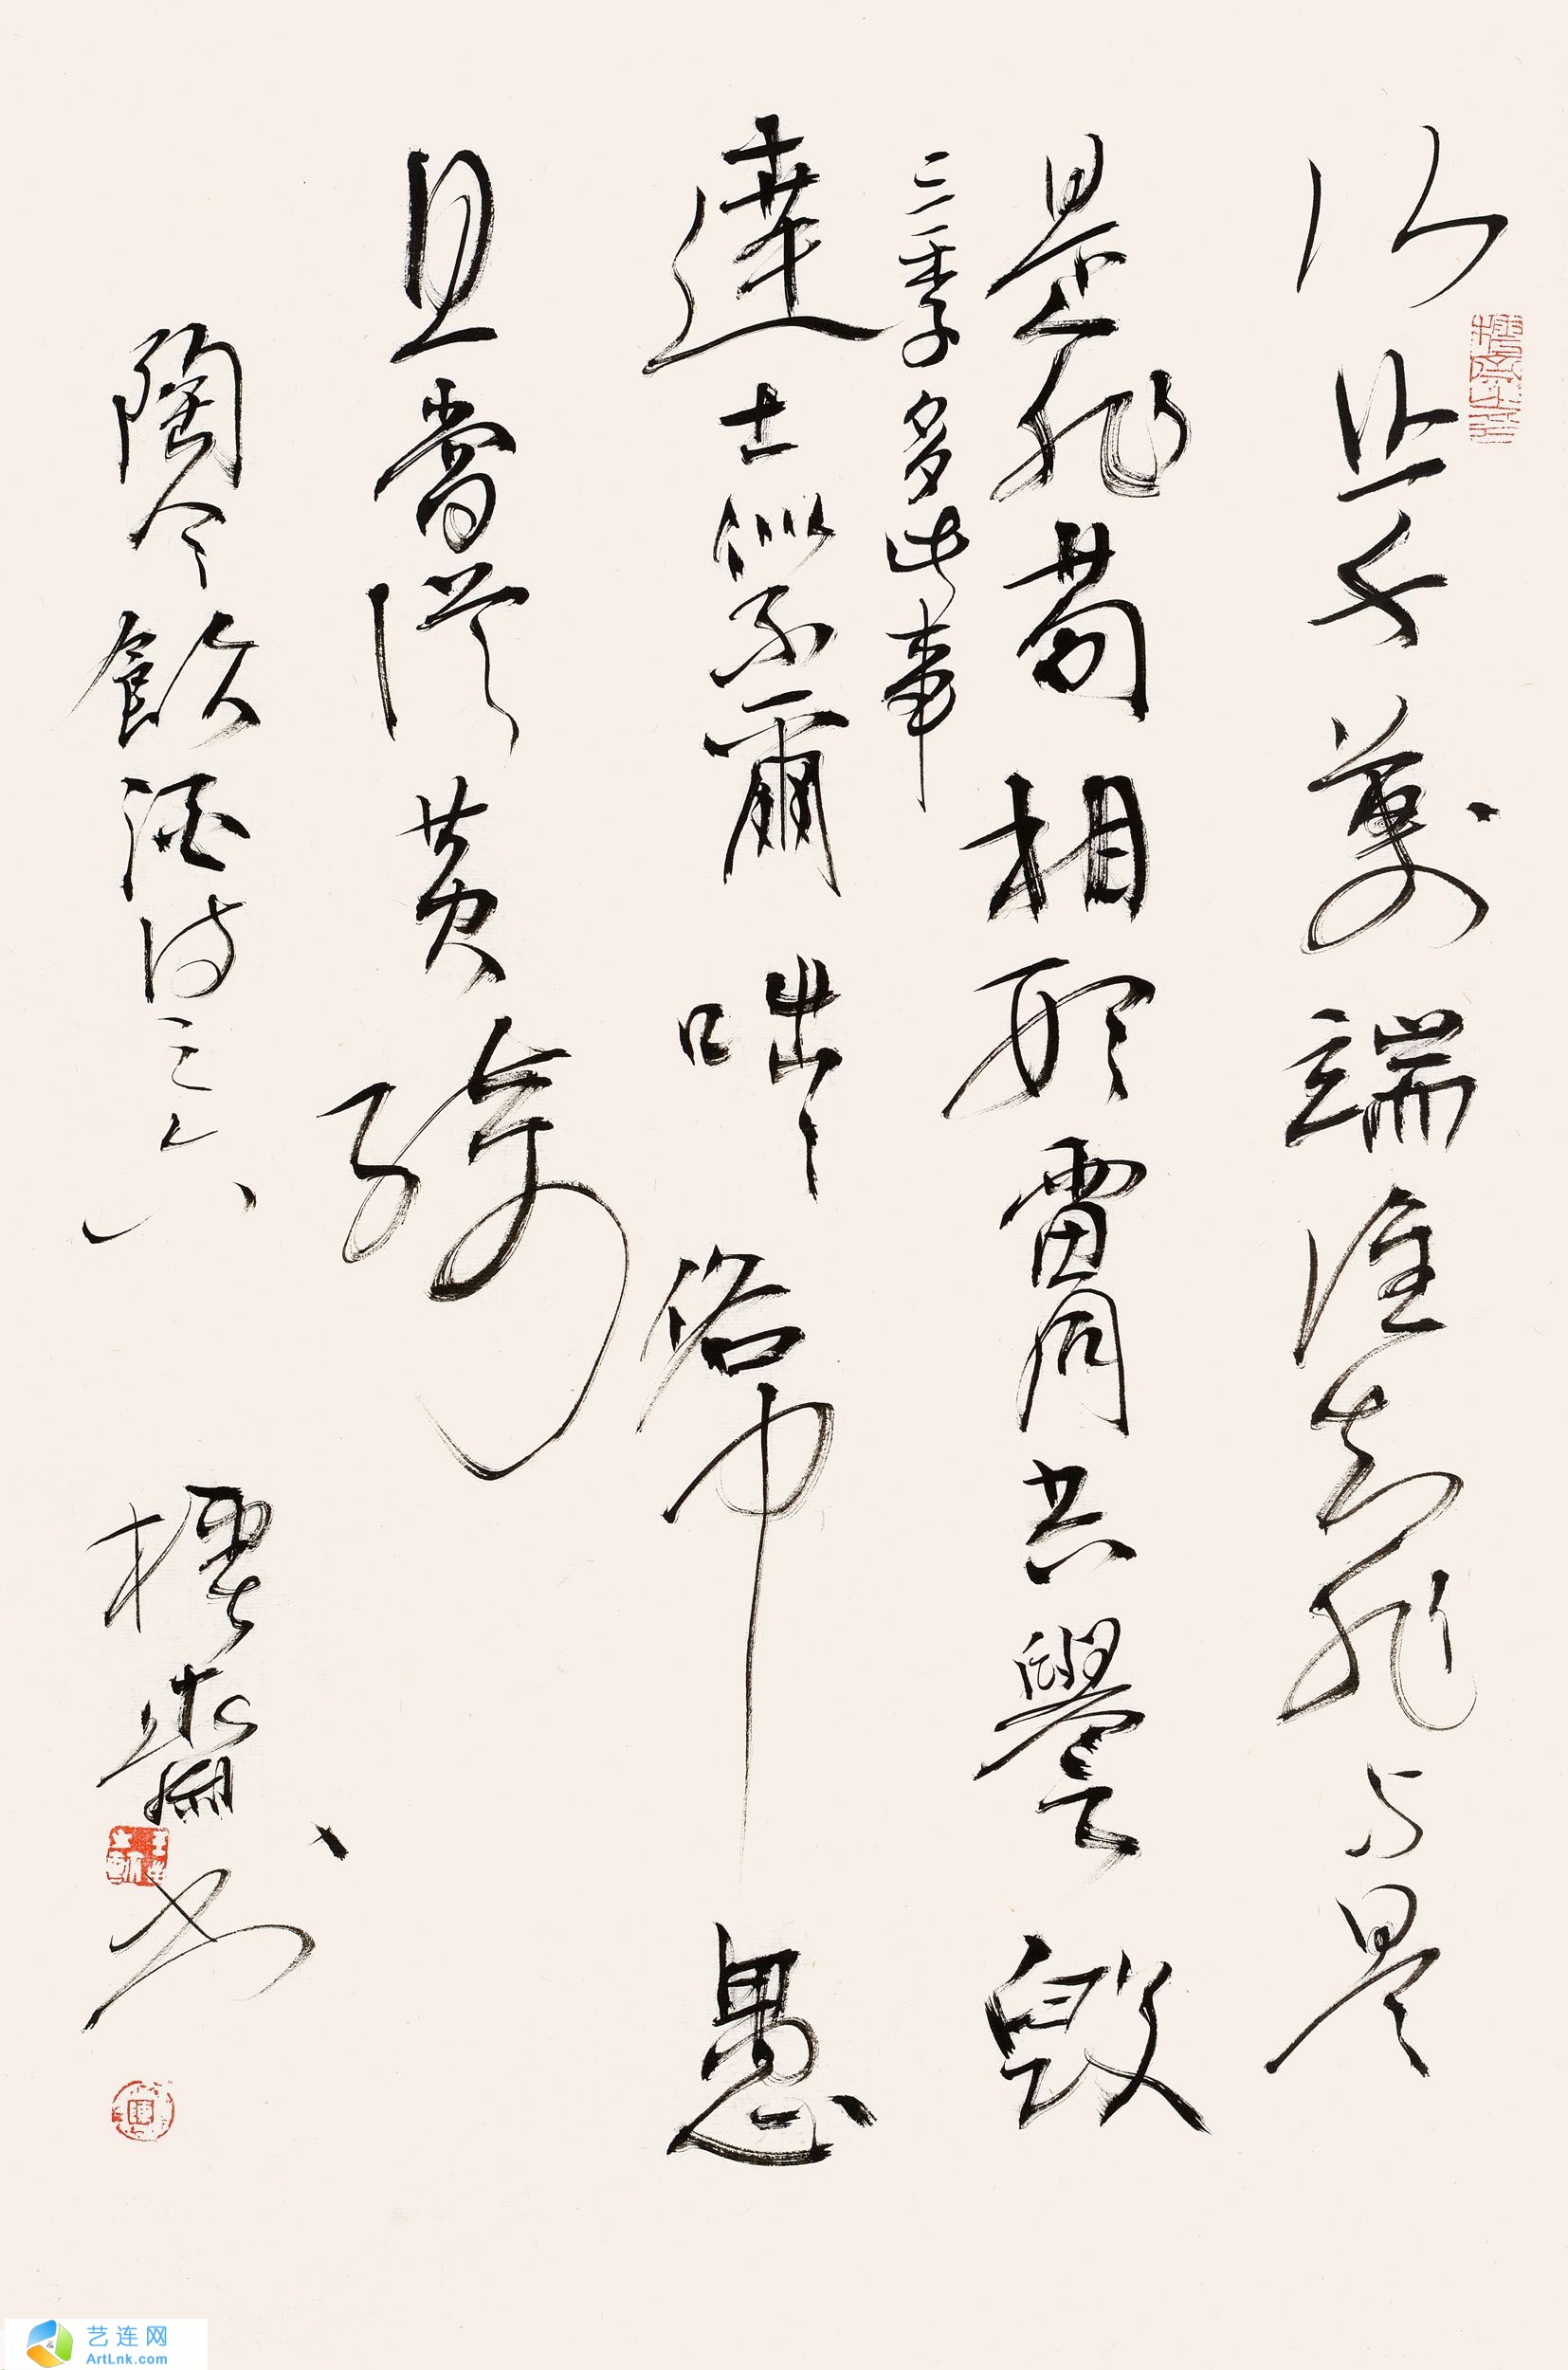 行止千萬端誰知非与是
是非苟相形雷同共譽毀
三季多此事
達士似不爾咄咄俗中愚
且當從黃綺
陶令飲酒詩之六 齋書
艺连网
ArtLnk.com